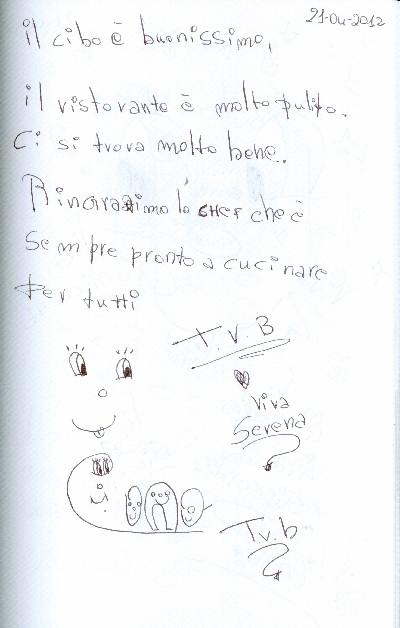 21-04-2012
il cibo è buonissimo,
il ristorante è molto pulito.
Ci si trova molto bene.
Ringraziamo lo CHEF che è
Sempre pronto a cucinare
Per tutti
T.V.B
Viva
Serena
T.v.b